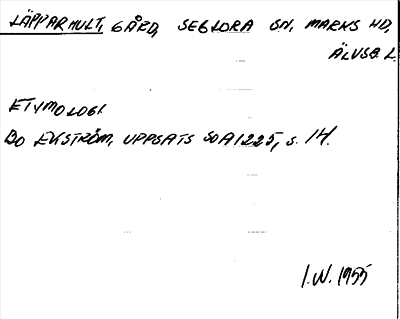 LÄPPARHULT, GÅRD, SEGLORA SN, MARKS HD,
ÄLVSB. L.
ETYMOLOGI.
BO EKSTRÖM, UPPSATS SOA1225, s. 14.
I.W. 1955